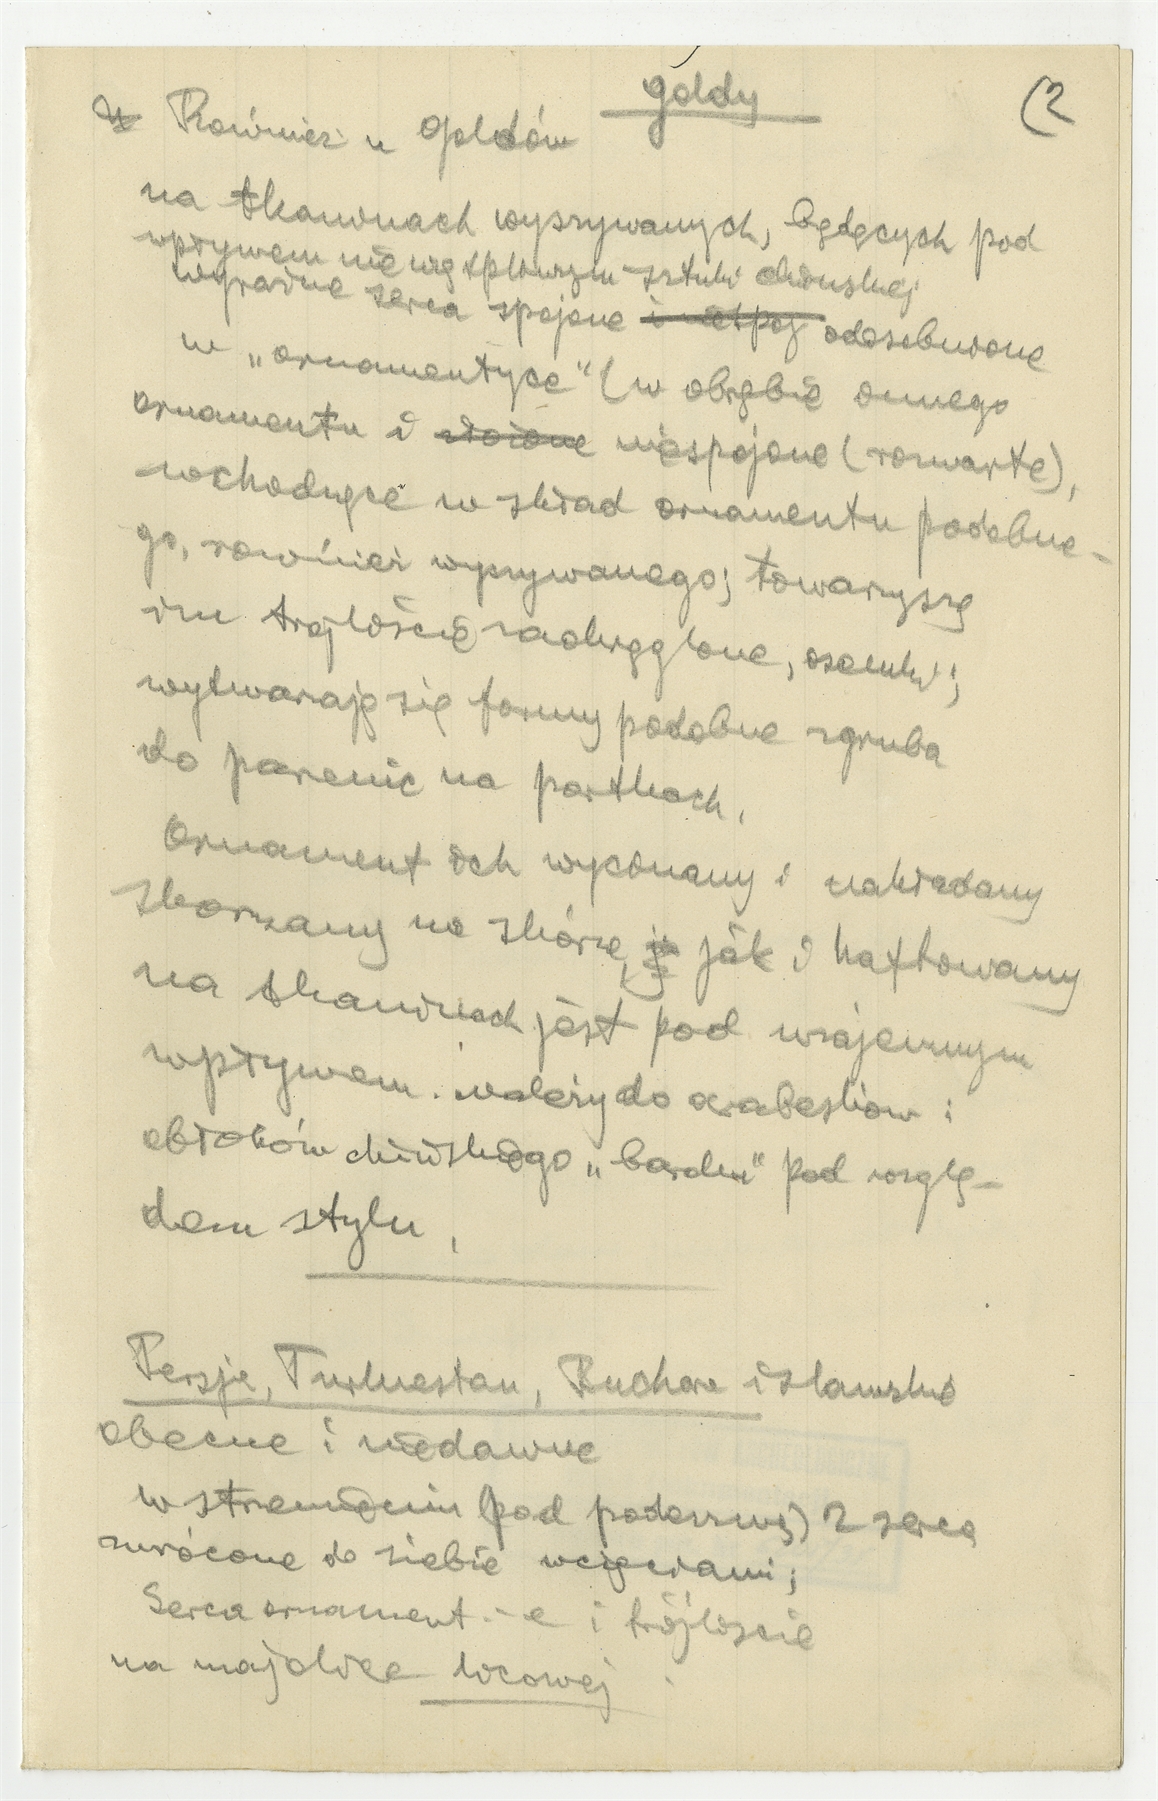 Goldy
(2
Również u Goldów
na tkaninach wyszywanych, będących pod
wpływem niewątpliwym sztuki chińskiej
wyraźne serca spojone odosobnione
w „ornamentyce" (w obrębie innego
ornamentu i niespojone (rozwarte),
wchodzące w skład ornamentu podobne-
go, również wyszywanego; towarzyszą
im trójliście zaokrąglone, ósemki;
wytwarzają się formy podobne zgruba
do parzenic na portkach.
Ornament ich wycinany i nakładany
skórzany na skórze, jak i haftowany
na tkaninach jest pod wzajemnym
wpływem. należy do arabesków i
obłoków chińskiego „baroku" pod wzglę-
dem stylu.
Persja, Turkiestan, Buchara islamskie
obecne i niedawne
w strzemieniu (pod podeszwą) 2 serca
zwrócone do siebie wcięciami;
Serca ornament.-e i trójliście
na majolice